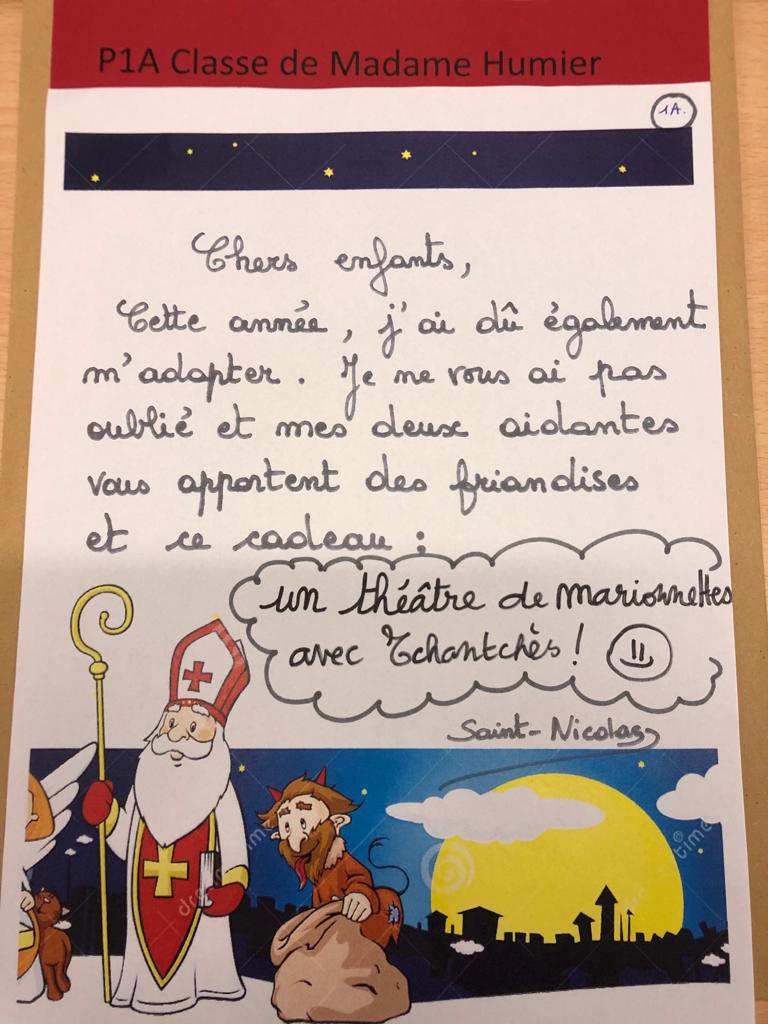 P1A Classe de Madame Humier
1A.
Chers enfants,
Cette année, j'ai dû également
m'adapter. Je ne vous ai pas
oublié et mes deux aidantes
vous apportent des friandises
et ce cadeau :
un théâtre de marionnettes
avec Tchantchès !
Saint-Nicolas